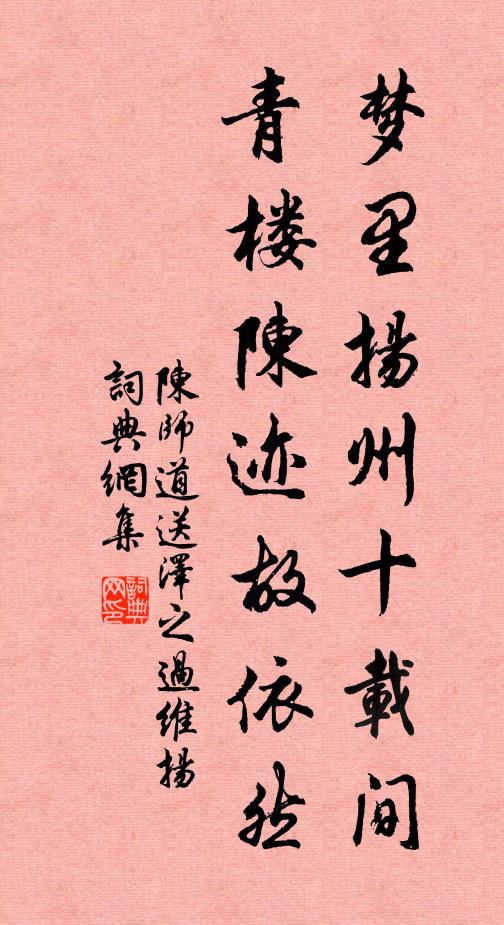 梦里揚州十載间
青楼陳迹故依然
陳師道送澤之過維揚
詞典網集
詞典网印